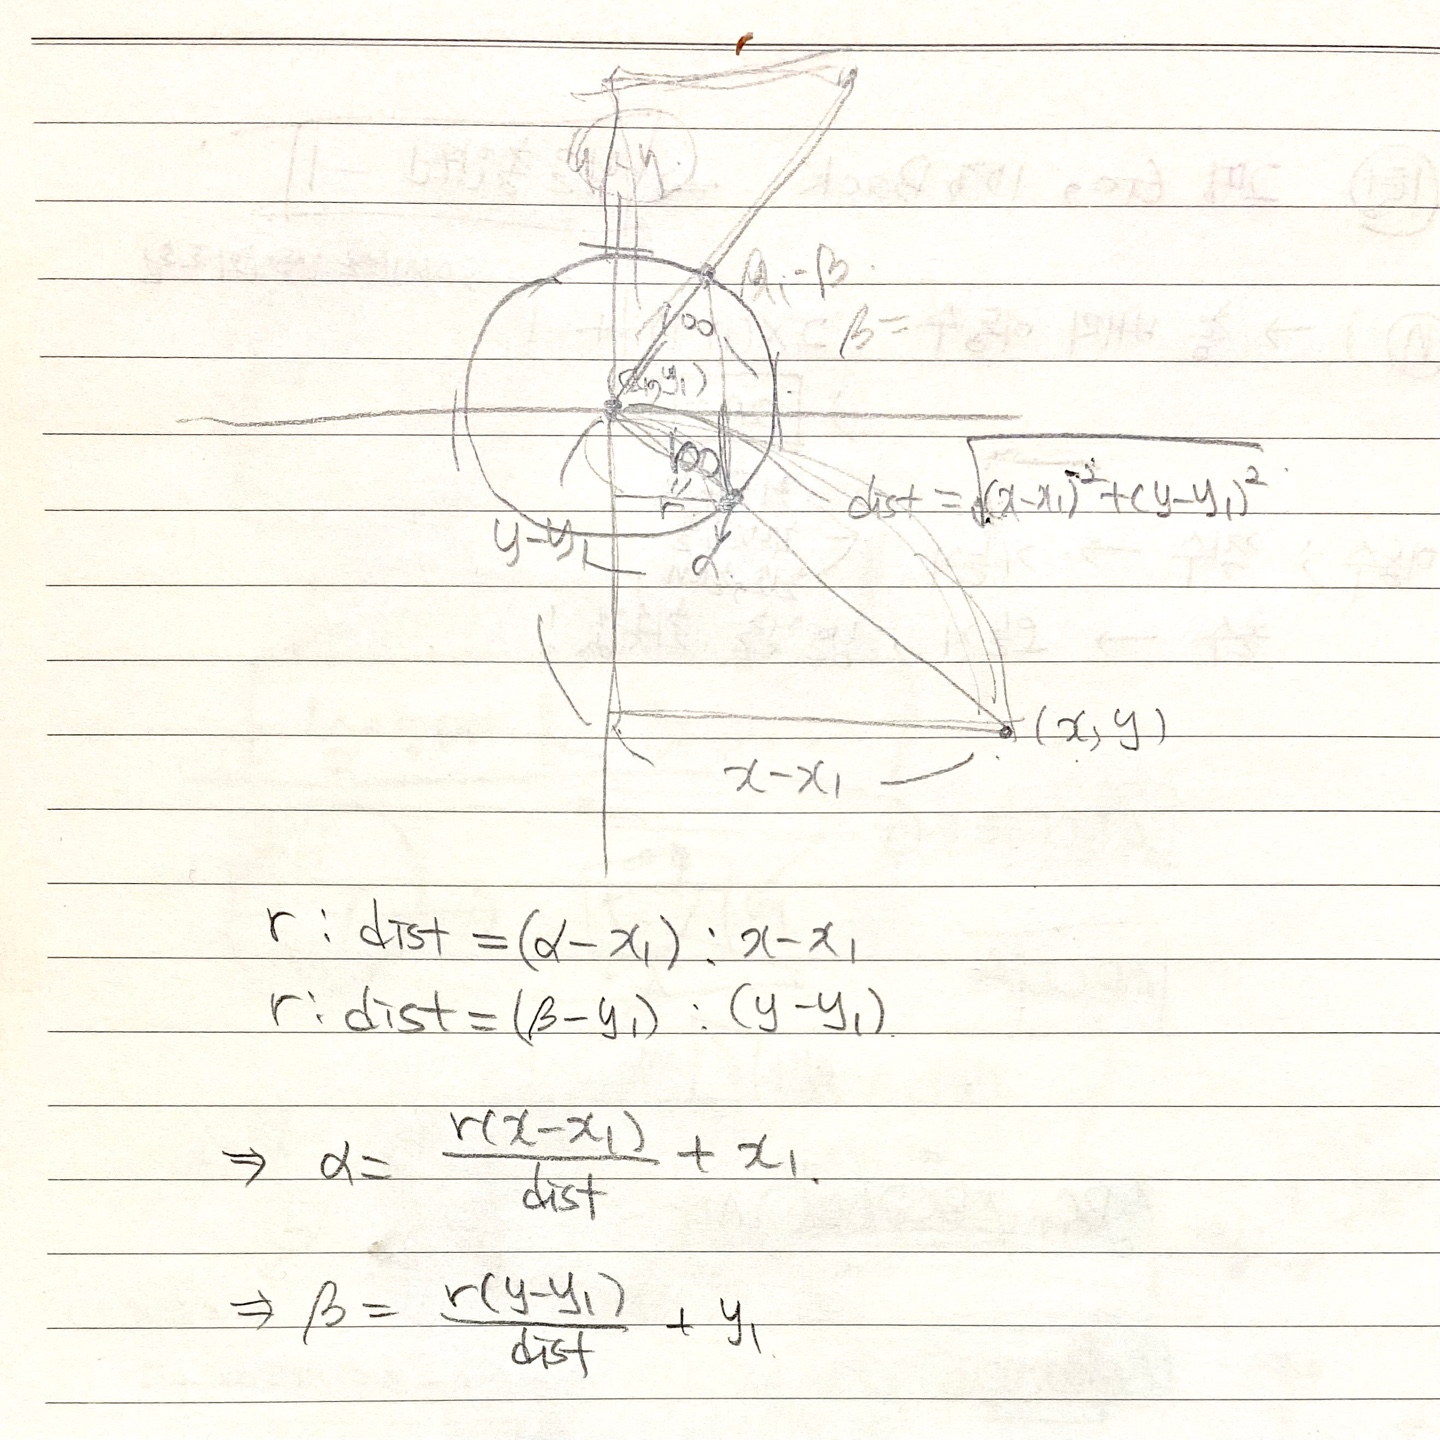 y-y₁
α, -β
100
β=
(x₁, y₁)
100
r
dist = √(x-x₁)²+(y-y₁)²
y-y₁
α
(x, y)
x-x₁
r : dist = (α-x₁) : x-x₁
r : dist = (β-y₁) : (y-y₁)
⇒ α = r(x-x₁)/dist + x₁.
⇒ β = r(y-y₁)/dist + y₁